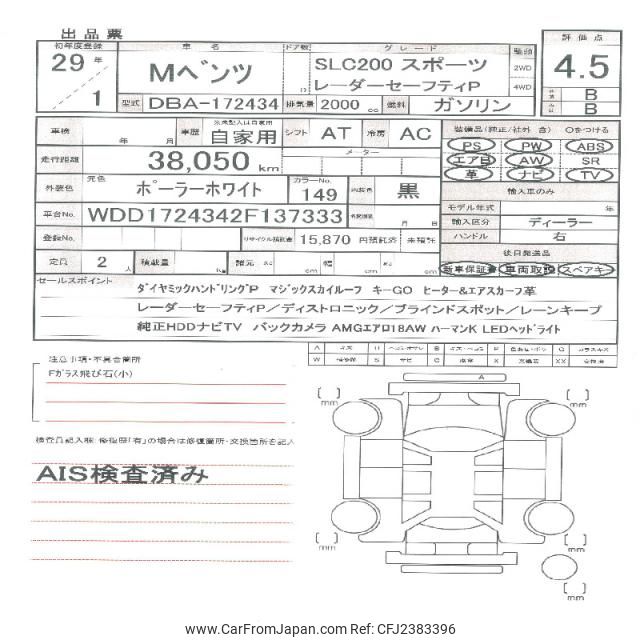 出品票
初年度登録 車名 ドア数 グレード 駆動 評価点
29年 1 Mベンツ SLC200 スポーツ 2WD 4.5
レーダーセーフティP 4WD B
型式 DBA-172434 排気量 2000 cc 燃料 ガソリン B
車検 年 月 車歴 自家用 シフト AT 冷房 AC 装備品(純正/社外 含) Oをつける
走行距離 38,050 km メーター PS PW ABS
エアB AW SR
革 ナビ TV
外装色 元色 ポーラーホワイト カラーNo. 149 内装色 黒 輸入車のみ
モデル年式 年
車台No. WDD1724342F137333 月 日 輸入区分 ディーラー
登録No. リサイクル預託金 15,870 円預託済 未預託 ハンドル 右
後日発送品
定員 2 人 積載量 Kg 諸元 長 cm 幅 cm 高 cm 新車保証書 車両取説 スペアキー
セールスポイント
ダイヤミックハンドリングP マジックスカイルーフ キーGO ヒーター&エアスカーフ革
レーダーセーフティP/ディストロニック/ブラインドスポット/レーンキープ
純正HDDナビTV バックカメラ AMGエアロ18AW ハーマンK LEDヘッドライト
注意事項・不具合箇所
Fガラス飛び石(小)
検査員記入欄:修復歴「有」の場合は修復箇所・交換箇所を記入
AIS検査済み
A
mm
mm
mm
mm
mm
www.CarFromJapan.com Ref: CFJ2383396